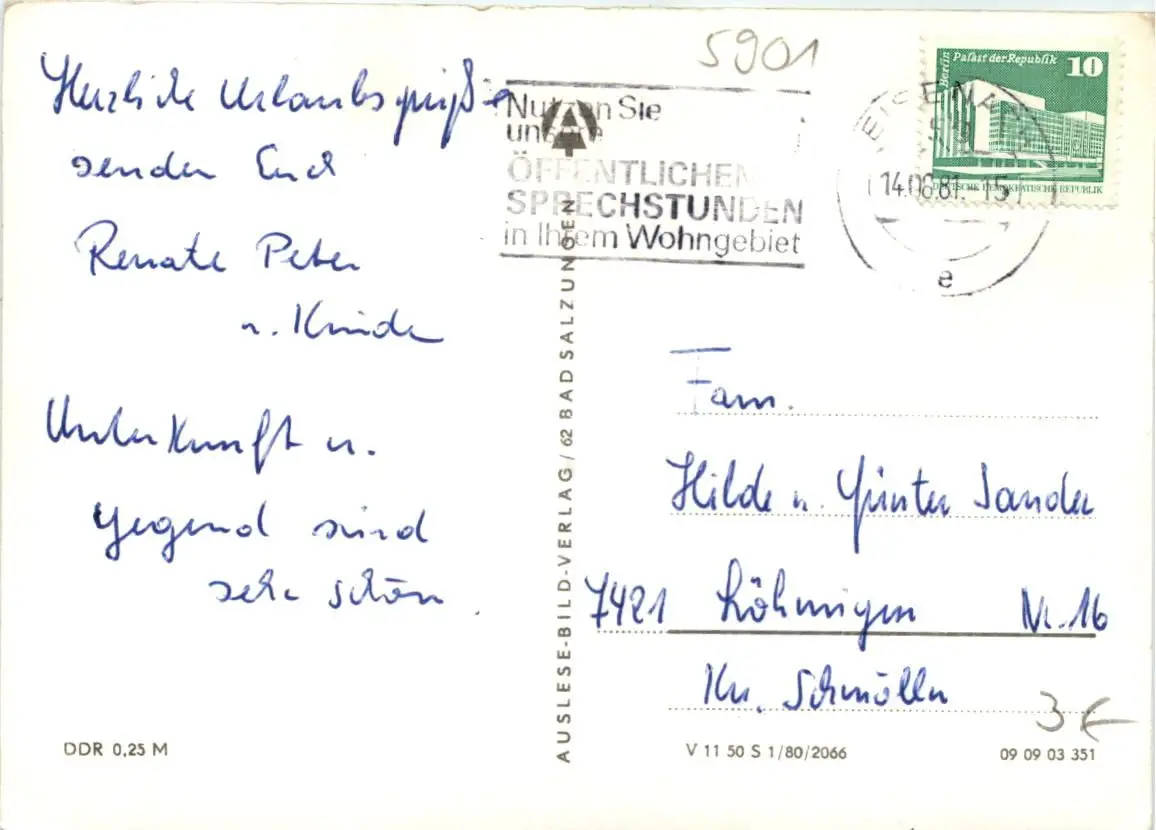 5901
Herzliche Urlaubsgrüße
senden Euch
Renate Peter
u. Kinder
Unterkunft u.
Gegend sind
sehr schön.
Nutzen Sie
unsere
ÖFFENTLICHEN
SPRECHSTUNDEN
in Ihrem Wohngebiet
EISENACH
14.08.81. 15
e
Berlin Palast der Republik 10
DEUTSCHE DEMOKRATISCHE REPUBLIK
AUSLESE-BILD-VERLAG / 62 BAD SALZUNGEN
Fam.
Hilde u. Günter Sander
7421 Löhmigen Nr. 16
Kr. Schmölln
3 €
DDR 0,25 M
V 11 50 S 1/80/2066
09 09 03 351